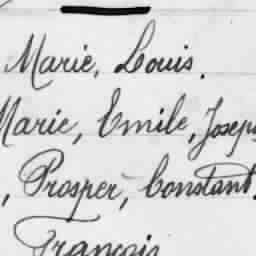 Marie, Louis.
Marie, Emile, Joseph
, Prosper, Constant.
François